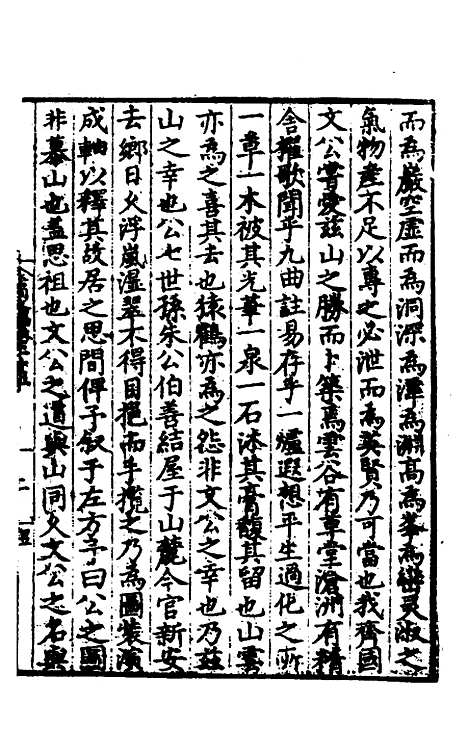 而為巖空虛而為洞深為潭為淵高為峯為巒灵淑之
氣物產不足以專之必泄而為英賢乃可當也我齊國
文公嘗愛茲山之勝而卜築焉雲谷有草堂滄洲有精
舍櫂歌聞乎九曲註易存乎一爐遐想平生過化之所
一草一木被其光華一泉一石沐其膏馥其留也山雲
亦為之喜其去也猿鶴亦為之怨非文公之幸也乃茲
山之幸也公七世孫朱公伯善結屋于山麓今官新安
去鄉日久浮嵐溼翠不得目挹而手攬之乃為圖裝演
成軸以釋其故居之思間俾予叙于左方予曰公之圖
非慕山也盖思祖也文公之道與山同久文公之名與